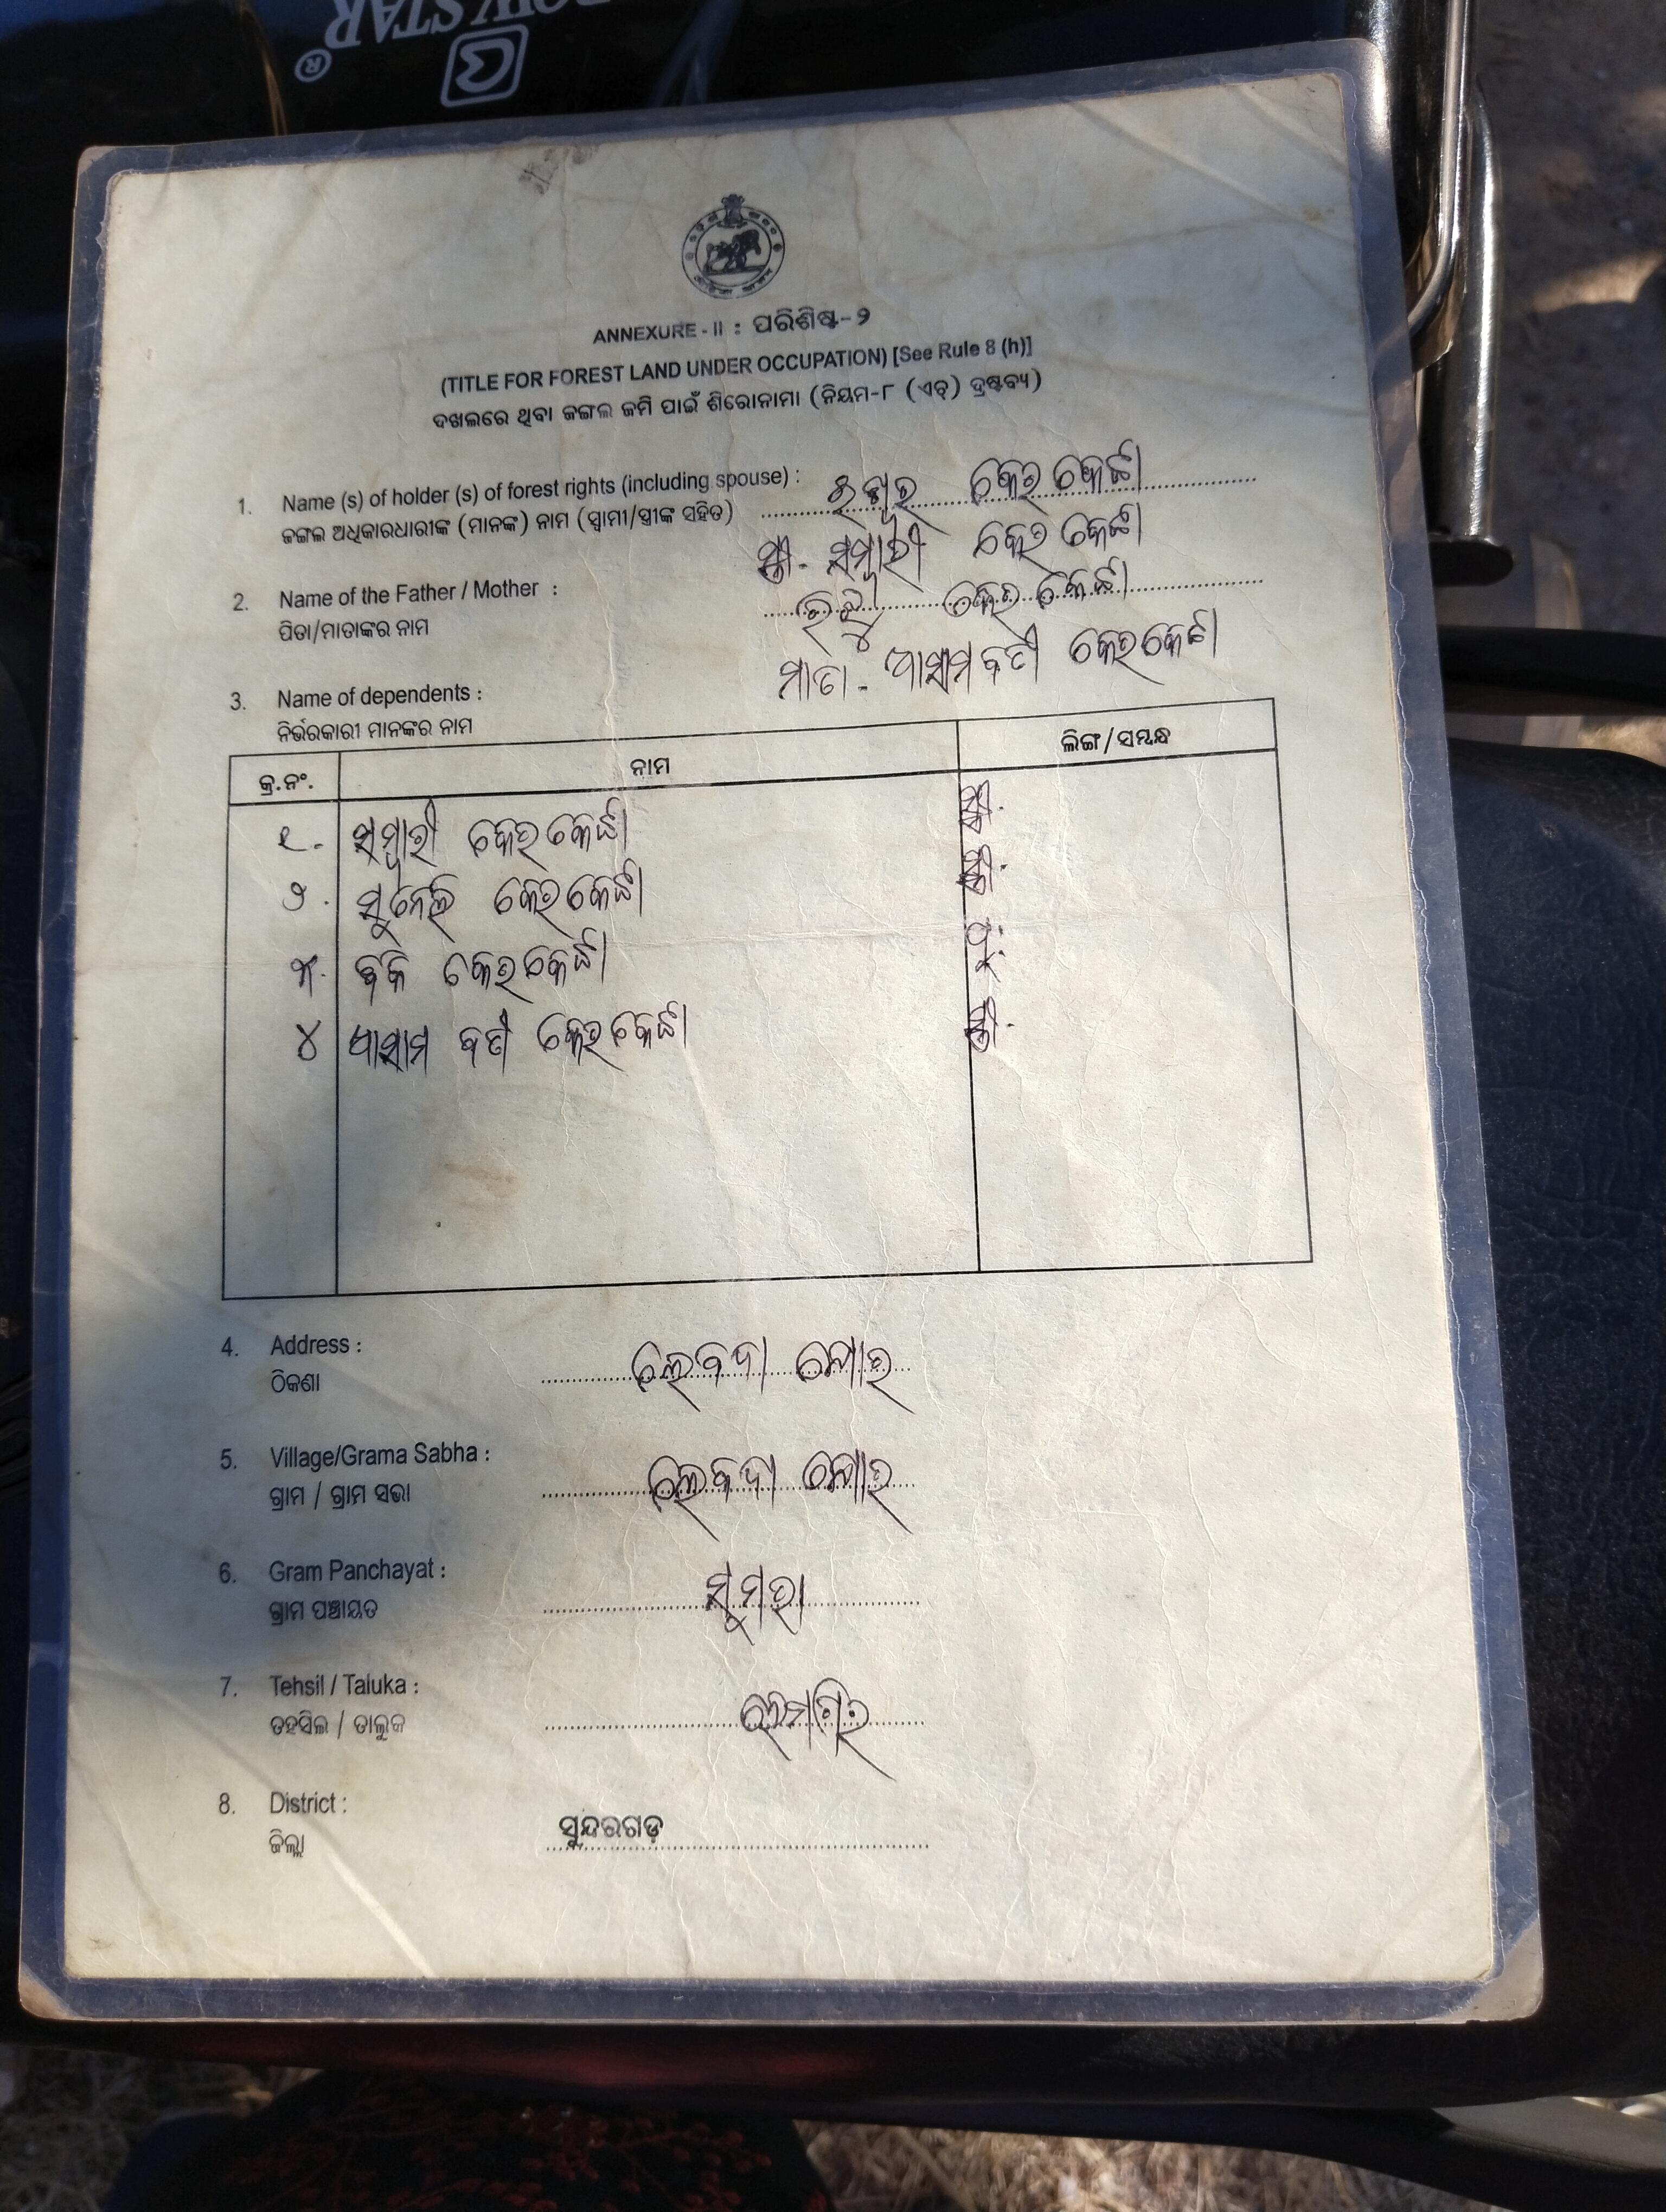 ROW STAR ®
ANNEXURE - II : ପରିଶିଷ୍ଟ-୨
(TITLE FOR FOREST LAND UNDER OCCUPATION) [See Rule 8 (h)]
ଦଖଲରେ ଥିବା ଜଙ୍ଗଲ ଜମି ପାଇଁ ଶିରୋନାମା (ନିୟମ-୮ (ଏଚ୍) ଦ୍ରଷ୍ଟବ୍ୟ)
1. Name (s) of holder (s) of forest rights (including spouse) : କେରକେଟ୍ଟା
ଜଙ୍ଗଲ ଅଧିକାରଧାରୀଙ୍କ (ମାନଙ୍କ) ନାମ (ସ୍ୱାମୀ/ସ୍ତ୍ରୀଙ୍କ ସହିତ)
ସ୍ତ୍ରୀ. ସମ୍ବାରୀ କେରକେଟ୍ଟା
2. Name of the Father / Mother : କେରକେଟ୍ଟା
ପିତା/ମାତାଙ୍କର ନାମ
ମାତା - ଆସାମବତୀ କେରକେଟ୍ଟା
3. Name of dependents :
ନିର୍ଭରକାରୀ ମାନଙ୍କର ନାମ
କ୍ର.ନଂ. ନାମ ଲିଙ୍ଗ/ସମ୍ବନ୍ଧ
୧. ସମ୍ବାରୀ କେରକେଟ୍ଟା ସ୍ତ୍ରୀ.
୨. ସୁନେଲି କେରକେଟ୍ଟା ସ୍ତ୍ରୀ.
୩. କେରକେଟ୍ଟା ପୁ.
୪ ଆସାମ ବତୀ କେରକେଟ୍ଟା ସ୍ତ୍ରୀ.
4. Address : ଲେବଦା
ଠିକଣା
5. Village/Grama Sabha : ଲେବଦା
ଗ୍ରାମ / ଗ୍ରାମ ସଭା
6. Gram Panchayat : ସୁମରା
ଗ୍ରାମ ପଞ୍ଚାୟତ
7. Tehsil / Taluka : ହେମଗିର
ତହସିଲ / ତାଲୁକ
8. District : ସୁନ୍ଦରଗଡ଼
ଜିଲ୍ଲା